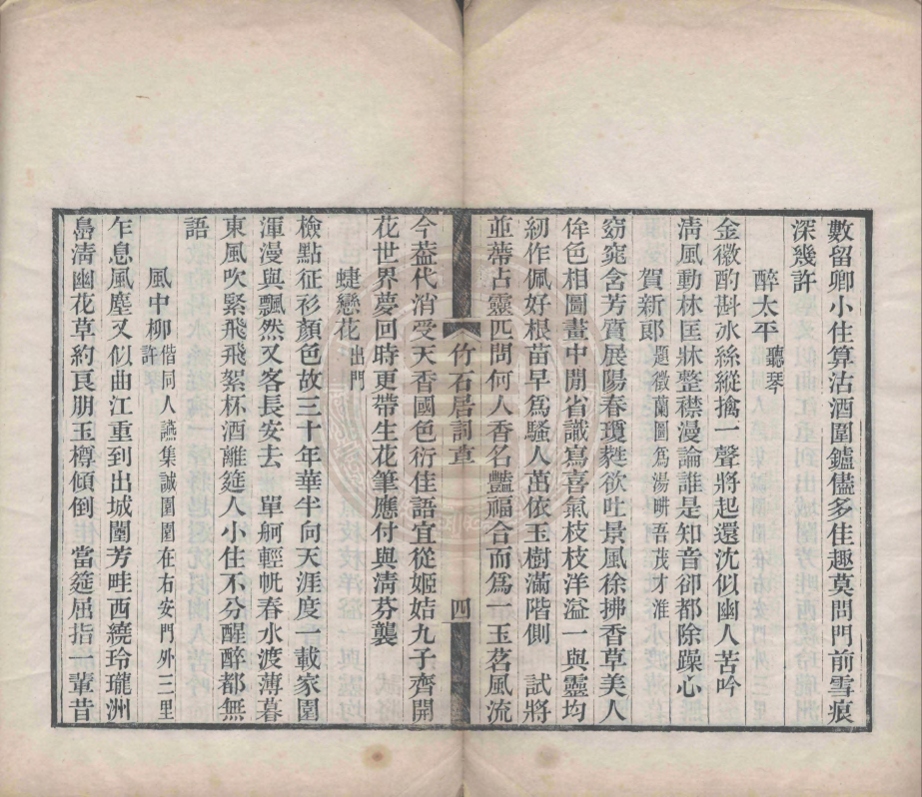 數留卿小住算沽酒圍鑪儘多佳趣莫問門前雪痕
深幾許
醉太平聽琴
金徽酌斟冰絲縱擒一聲將起還沈似幽人苦吟
淸風動林匡牀整襟漫論誰是知音卻都除躁心
賀新郎題徵蘭圖爲湯畊吾茂才淮
窈窕含芳賁展陽春瓊蕤欲吐景風徐拂香草美人
侔色相圖畫中閒省識寫喜氣枝枝洋溢一與靈均
紉作佩好根苗早爲騷人茁依玉樹滿階側 試將
並蔕占靈匹問何人香名豔福合而爲一玉茗風流
竹石居詞草 四
今葢代消受天香國色衍佳語宜從姬姞九子齊開
花世界夢回時更帶生花筆應付與淸芬襲
蜨戀花出門
檢點征衫顏色故三十年華半向天涯度一載家園
渾漫與飄然又客長安去 單舸輕帆春水渡薄暮
東風吹緊飛飛絮杯酒離筵人小住不分醒醉都無
語
風中柳偕同人讌集誠園園在右安門外三里許
乍息風塵又似曲江重到出城闉芳畦西繞玲瓏洲
嶌淸幽花草約良朋玉樽傾倒 當筵屈指一輩昔